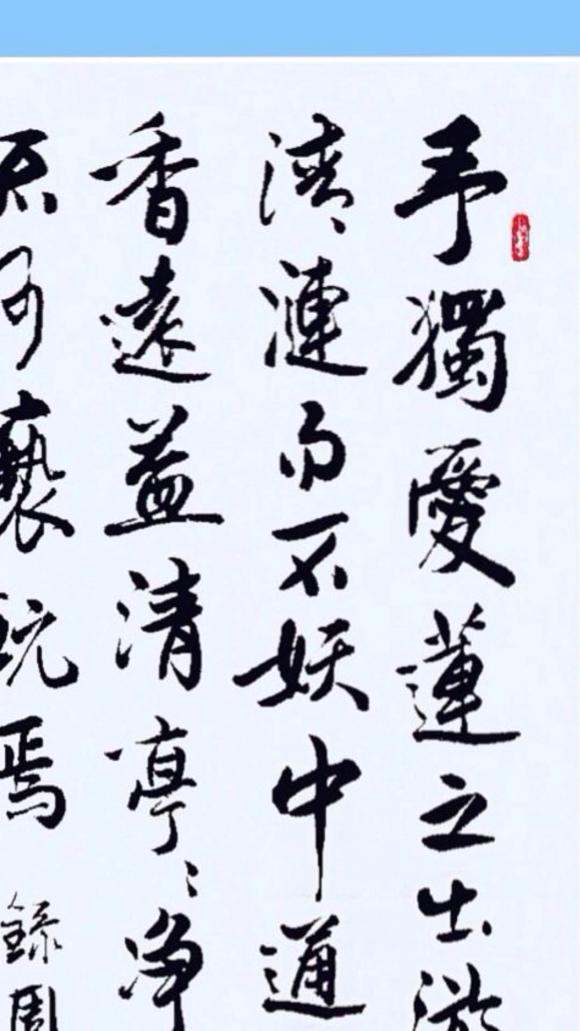 予獨愛蓮之出淤
清漣而不妖中通
香遠益清亭〻淨
不可褻玩焉 錄周